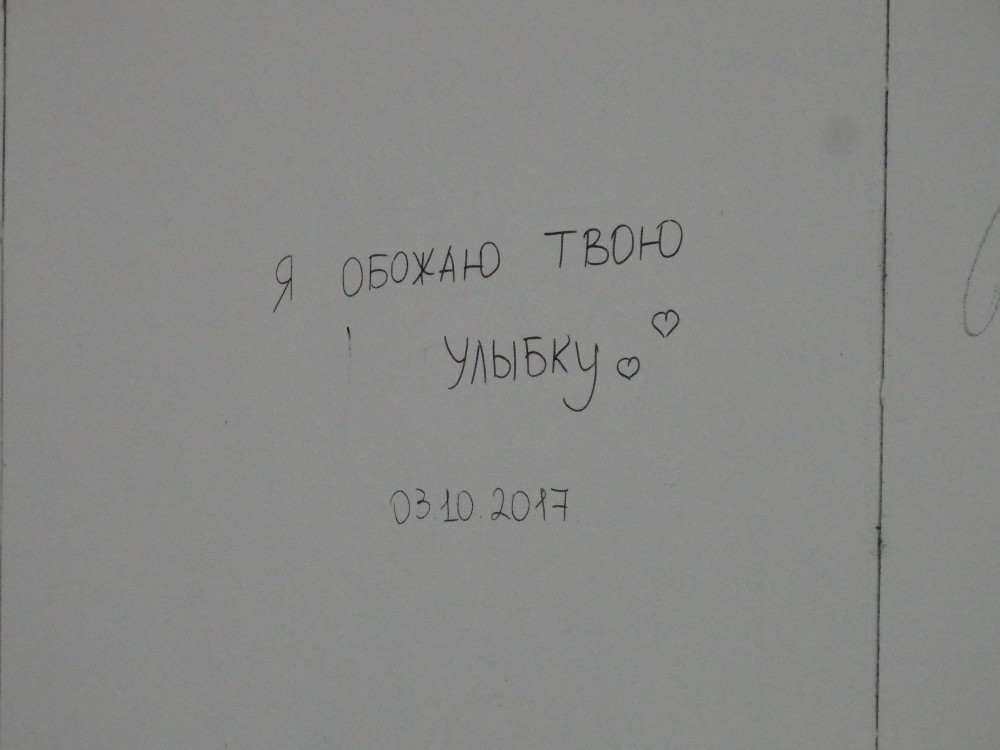 Я ОБОЖАЮ ТВОЮ
УЛЫБКУ
03.10.2017